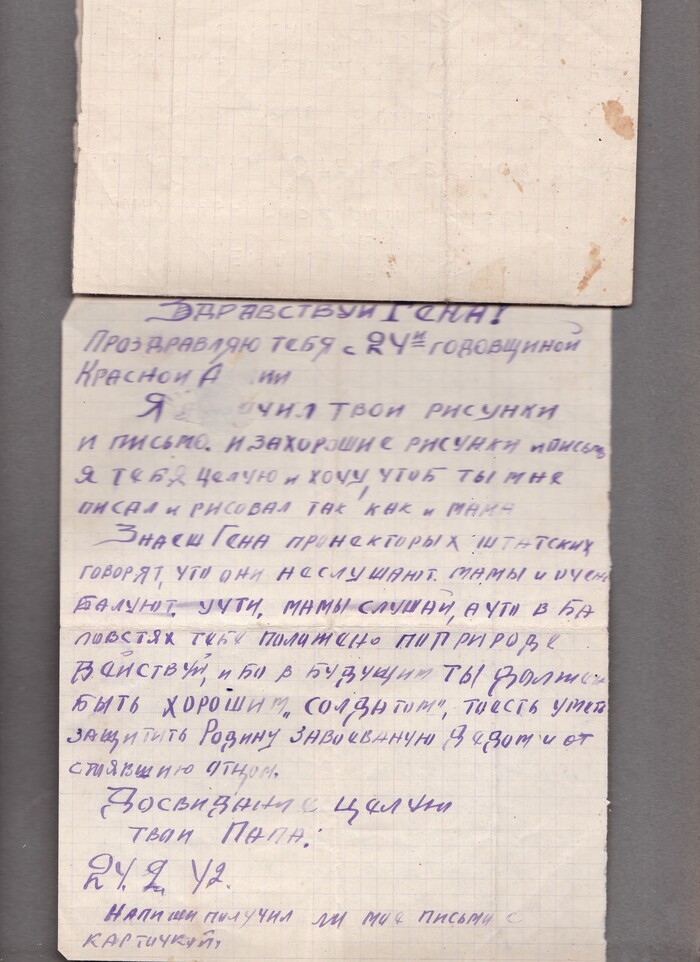 Здравствуй Гена!
Проздравляю тебя с 24й годовщиной
Красной А ии
Я чил твои рисунки
и письмо. и захорошие рисунки и письмо
я тебя целую и хочу, чтоб ты мне
писал и рисовал так как и мама
Знаеш Гена пронекторых штатских
говорят, что они неслушают мамы и очен
балуют. учти, мамы слушай, а что в ба
ловстях тебе положено поприроде
действуй, ибо в будущим ты должен
быть хорошим „солдатом", тоесть уметь
защитить Родину завоеваную дедом и от
стоявшию отцом.
Досвидание целую
твой Папа.
24. 2. 42.
Напиши получил ли мое письмо с
карточкой.